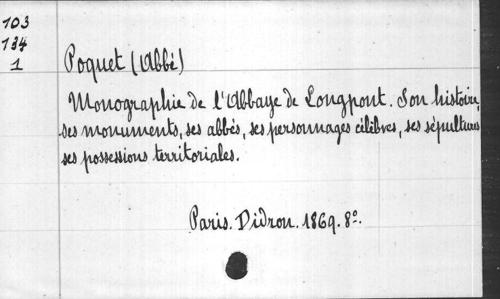 103
134
1
Poquet (Abbé)
Monographie de l'Abbaye de Longpont. Son histoire,
ses monuments, ses abbés, ses personnages célèbres, ses sépultures
ses possessions territoriales.
Paris. Didron. 1869. 8°.